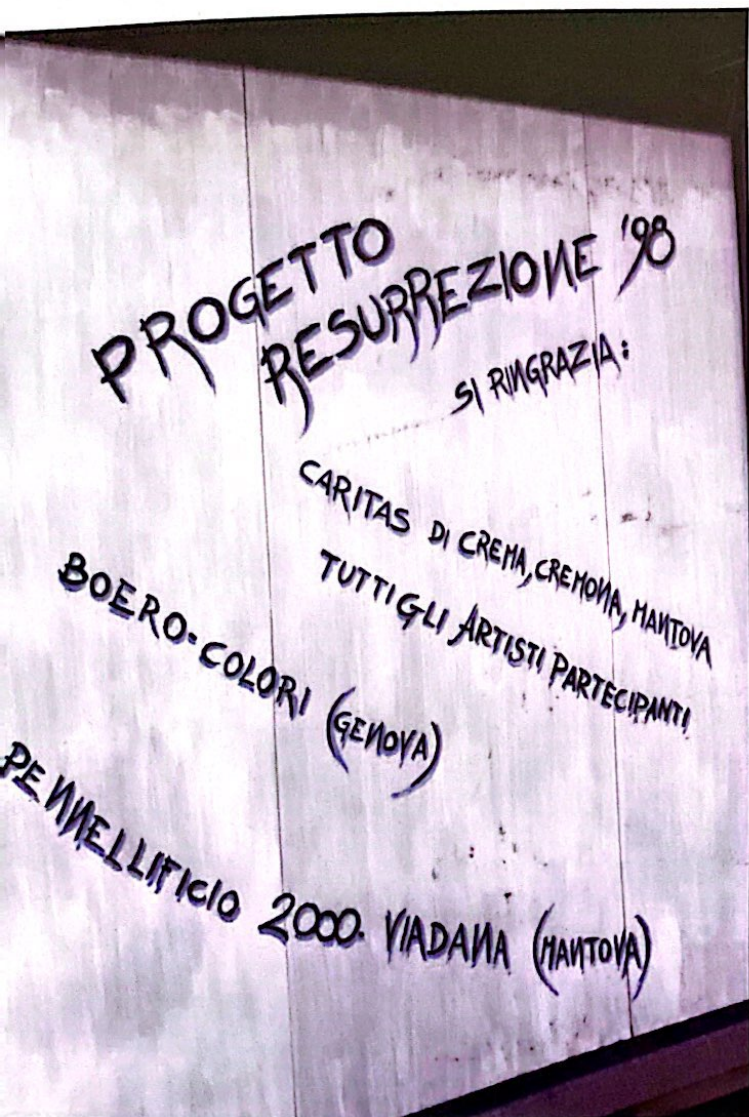 PROGETTO
RESURREZIONE '98
SI RINGRAZIA:
CARITAS DI CREMA, CREMONA, MANTOVA
TUTTI GLI ARTISTI PARTECIPANTI
BOERO-COLORI (GENOVA)
PENNELLIFICIO 2000. VIADANA (MANTOVA)